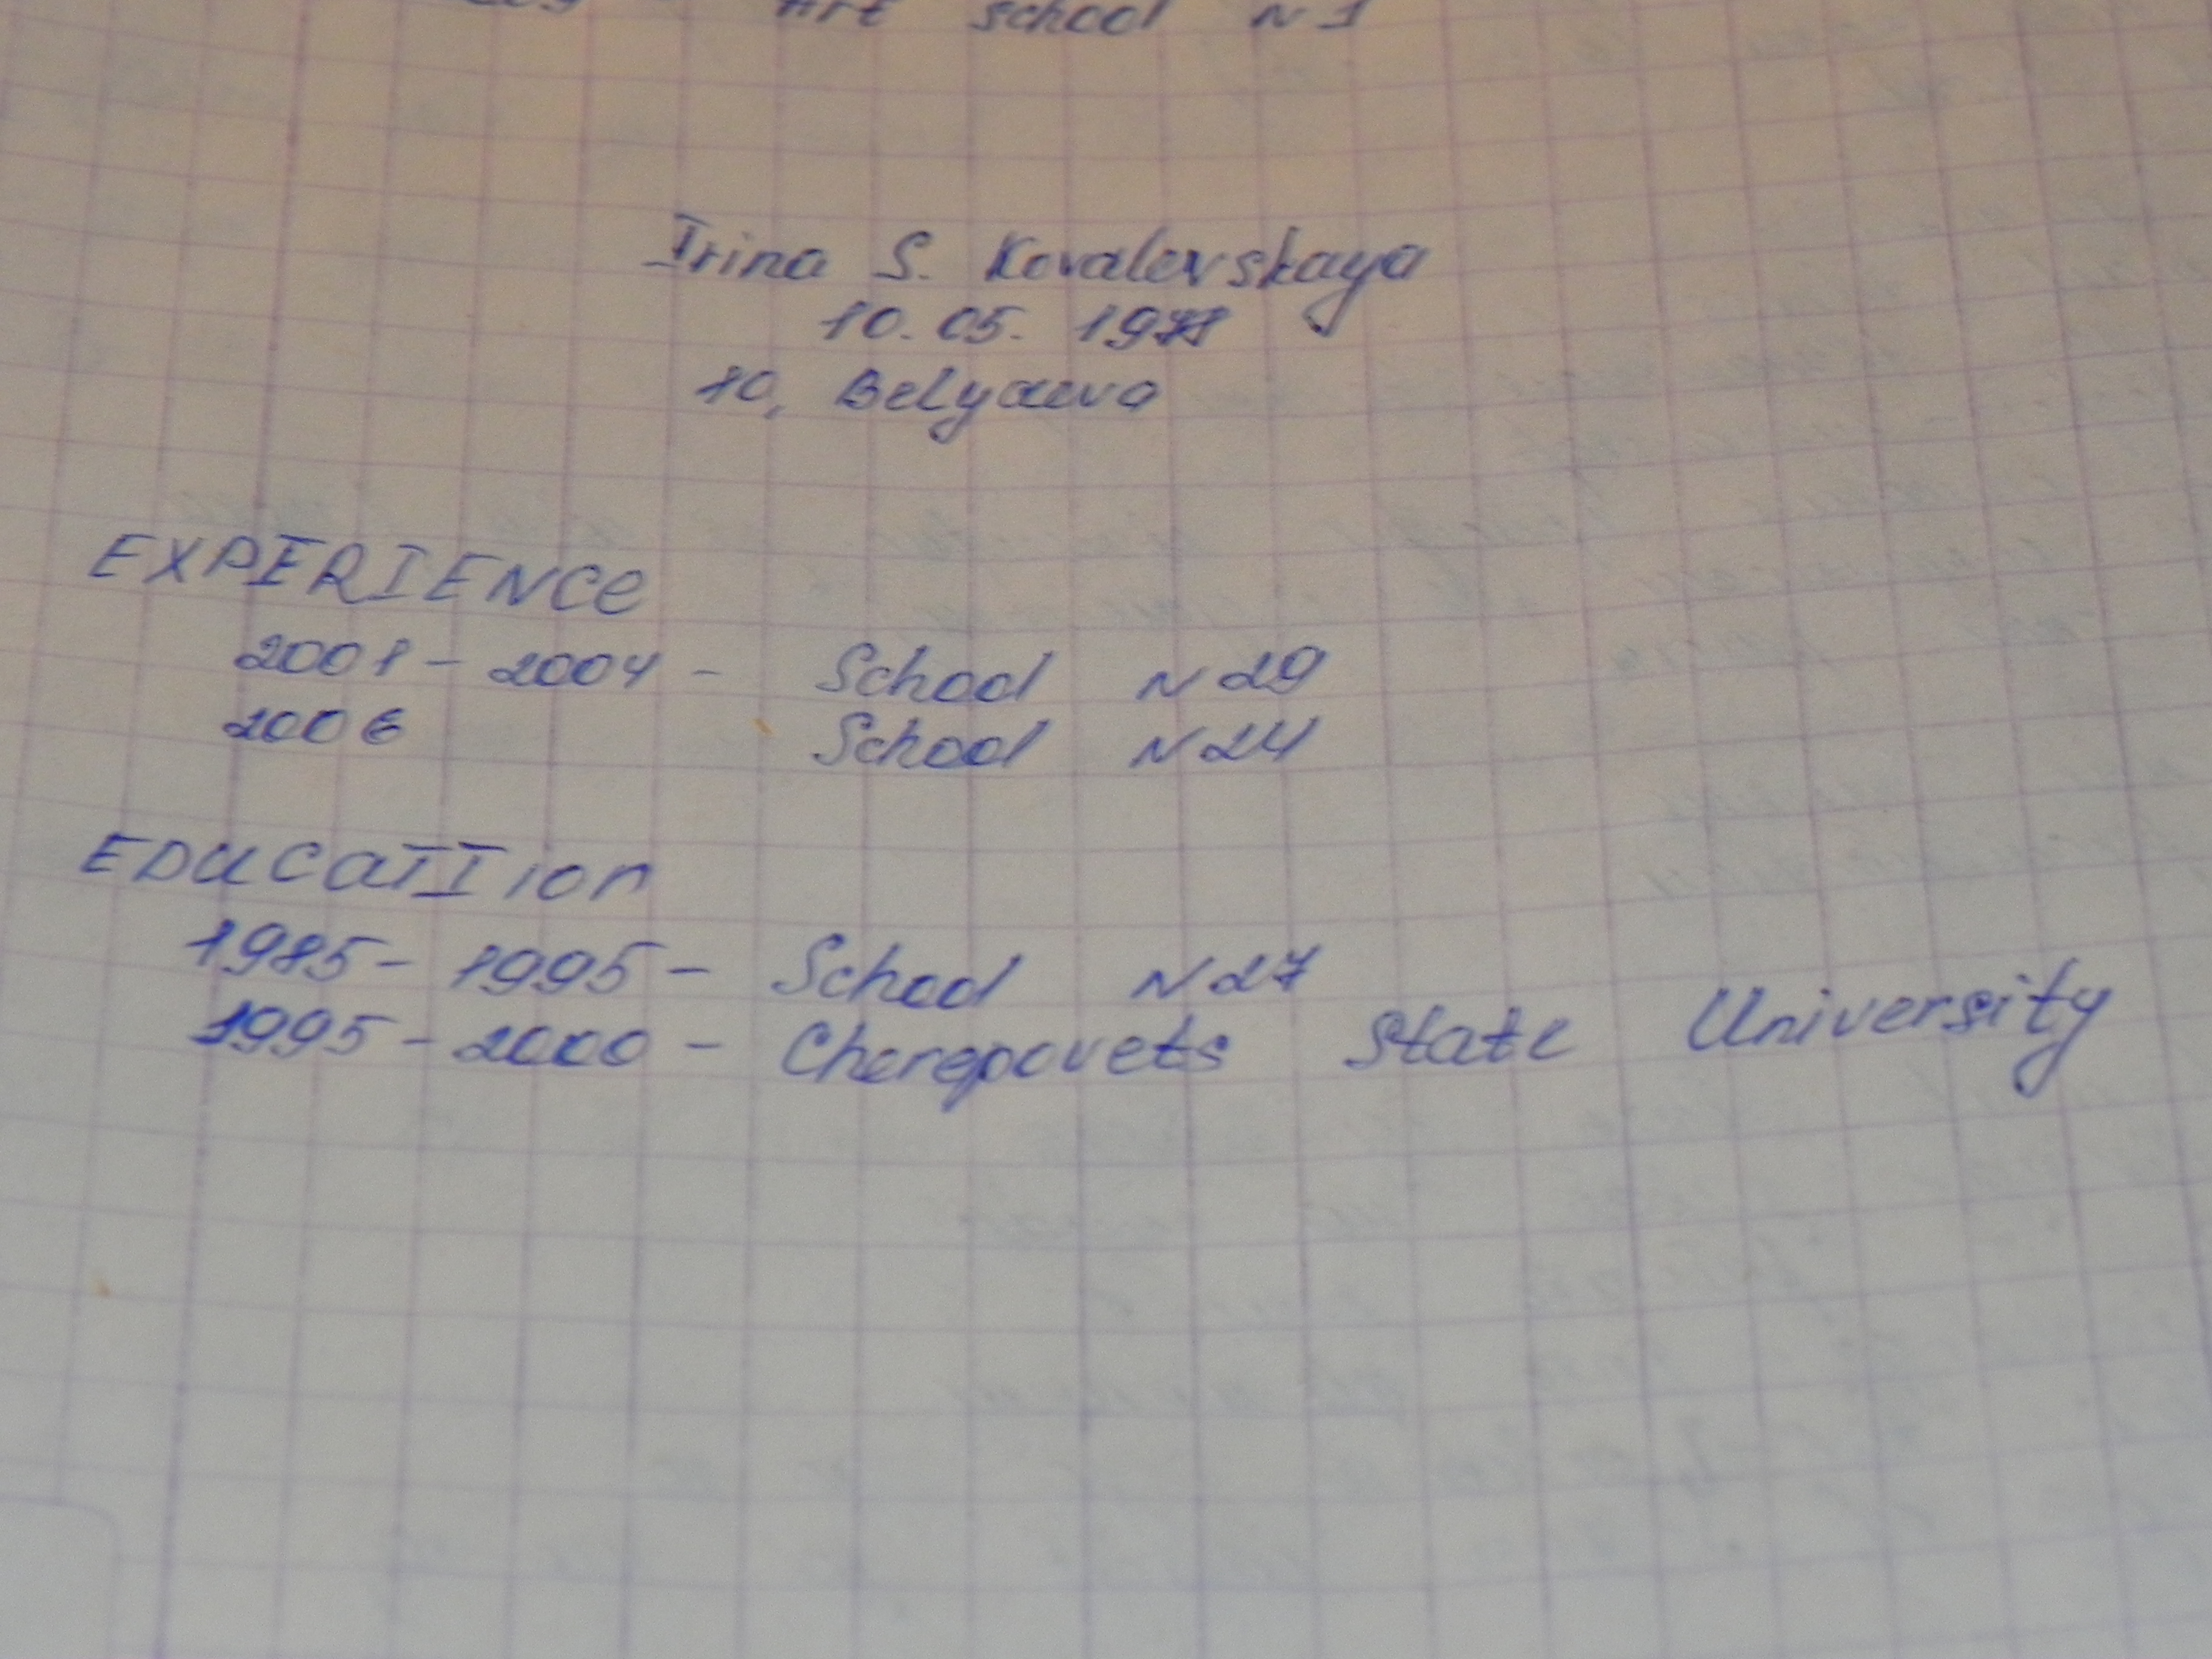 Art school N1
Irina S. Kovalevskaya
10.05.
10, Belyaeva
EXPERIENCe
2001 - 2004 - School N29
2006 School N24
EDUCaTIion
1985 - 1995 - School N27
1995 - 2000 - Cherepovets State University